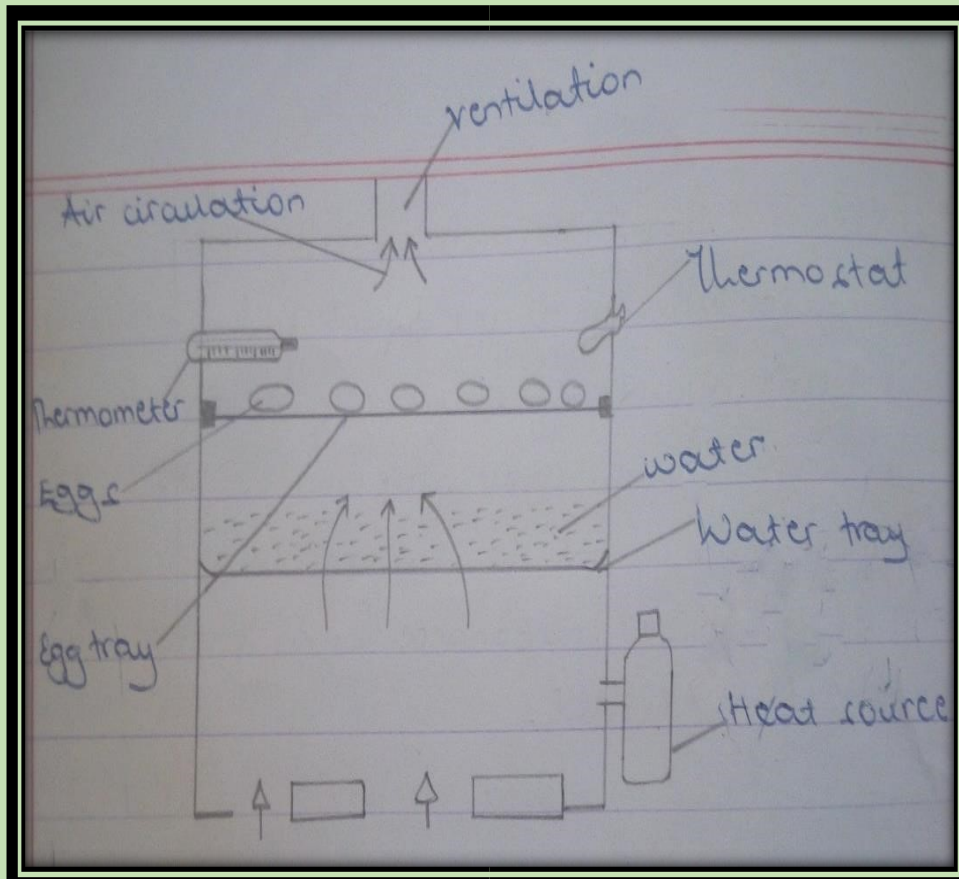 ventilation
Air circulation
Thermostat
Thermometer
Eggs
water
Water tray
Egg tray
Heat source